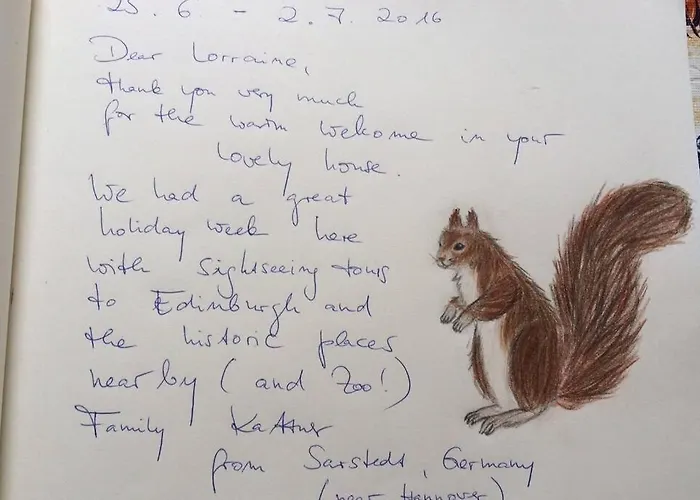 25. 6. - 2. 7. 2016
Dear Lorraine,
thank you very much
for the warm welcome in your
lovely house.
We had a great
holiday week here
with sightseeing tours
to Edinburgh and
the historic places
nearby (and Zoo!)
Family
from Sarstedt, Germany
(near Hannover)